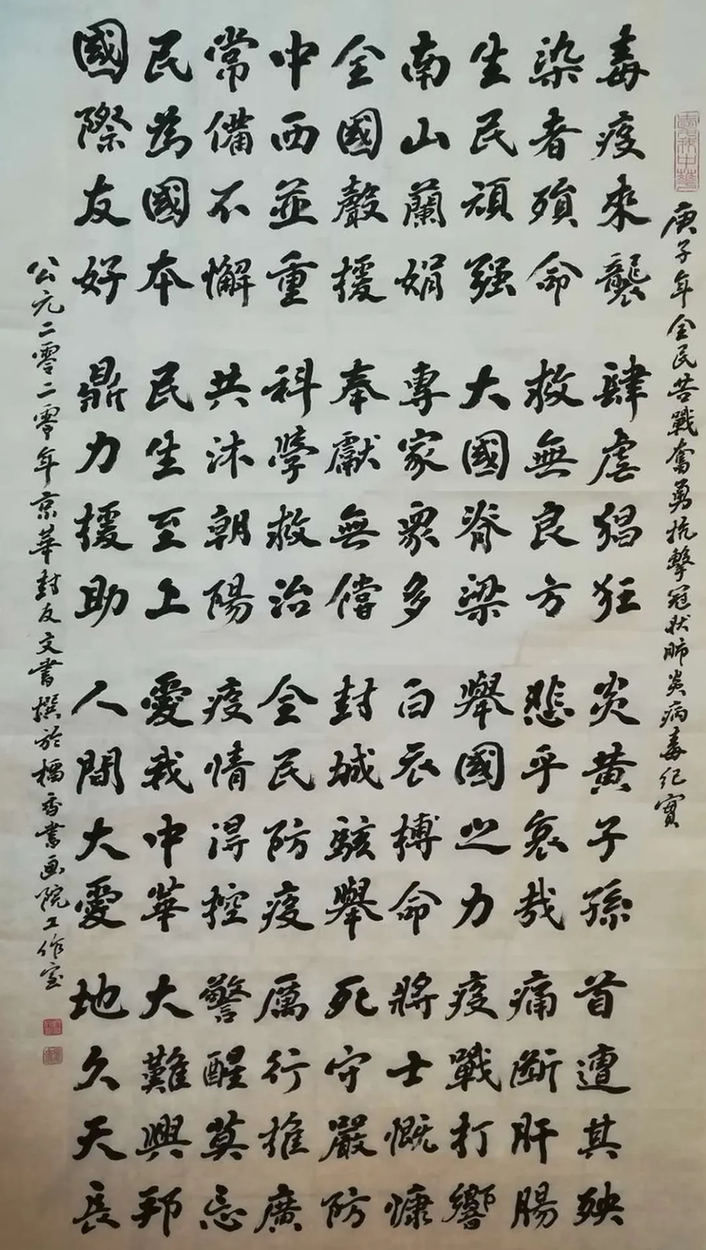 庚子年全民苦戰奮勇抗擊冠狀肺炎病毒纪實
毒疫來襲 肆虐猖狂 炎黄子孫 首遭其殃
染者殞命 救無良方 悲乎哀哉 痛斷肝腸
生民頑强 大國脊梁 舉國之力 疫戰打響
南山蘭娟 專家衆多 白衣搏命 將士慨慷
全國聲援 奉獻無償 封城駭舉 死守嚴防
中西並重 科學救治 全民防疫 厲行推廣
常備不懈 共沐朝陽 疫情得控 警醒莫忘
民為國本 民生至上 愛我中華 大難興邦
國際友好 鼎力援助 人間大愛 地久天長
公元二零二零年京華封友文書撰於檽香書画院工作室